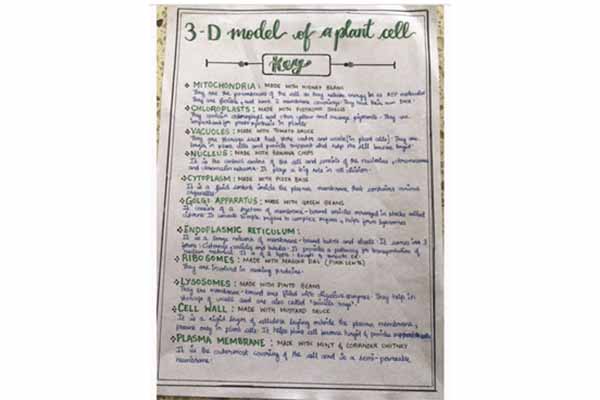 3-D model of a plant cell
Key
MITOCHONDRIA: MADE WITH KIDNEY BEANS
They are the powerhouses of the cell as they release energy in as ATP molecules
They are flexible, and have 2 membrane coverings. They have their own DNA.
CHLOROPLASTS: MADE WITH PISTACHIO SHELLS
They contain chlorophyll and other yellow and orange pigments. They are
important for photosynthesis in plants
VACUOLES: MADE WITH TOMATO SAUCE
They are storage sacs that store water and waste (in plant cells). They are
large in plant cells and provide support and help the cell become turgid
NUCLEUS: MADE WITH BANANA CHIPS
It is the control centre of the cell and consists of the nucleolus, chromosomes
and chromatin network. It plays a big role in cell division.
CYTOPLASM: MADE WITH PIZZA BASE
It is a fluid content inside the plasma membrane that contains various
organelles
GOLGI APPARATUS: MADE WITH GREEN BEANS
It consists of a system of membrane-bound vesicles arranged in stacks called
cisterns. It converts simple sugars to complex sugars, helps form lysosomes
ENDOPLASMIC RETICULUM:
It is a large network of membrane-bound tubes and sheets. It comes in 3
forms: Cisternae, vesicles and tubules. It provides a pathway for transportation of
nuclear material. It is of 2 types - rough & smooth ER.
RIBOSOMES: MADE WITH MASOOR DAL (PINK LENTIL)
They are involved in making proteins.
LYSOSOMES: MADE WITH PINTO BEANS
They are membrane-bound sacs filled with digestive enzymes. They help in
storage of waste and are also called "suicide bags".
CELL WALL: MADE WITH MUSTARD SAUCE
It is a rigid layer of cellulose laying outside the plasma membrane,
present only in plant cells. It helps plant cell become turgid & provides support
PLASMA MEMBRANE: MADE WITH MINT & CORIANDER CHUTNEY
It is the outermost covering of the cell and is a semi-permeable
membrane.